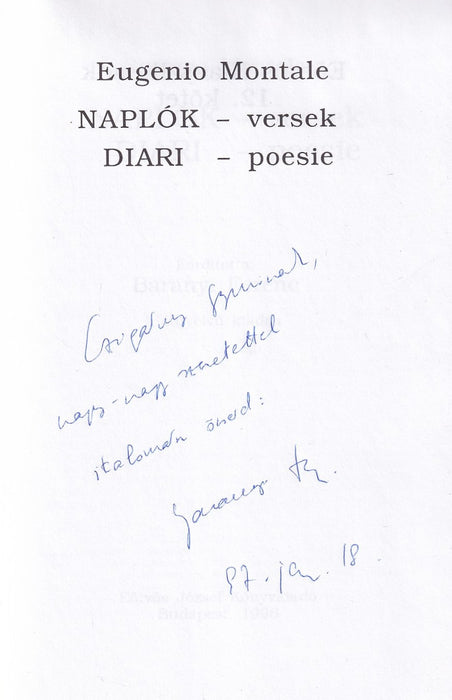 Eugenio Montale
NAPLÓK – versek
DIARI – poesie
Czigány Gyurinak,
nagy-nagy szeretettel
italomán őseid:
Baranyi
97. jan. 18.